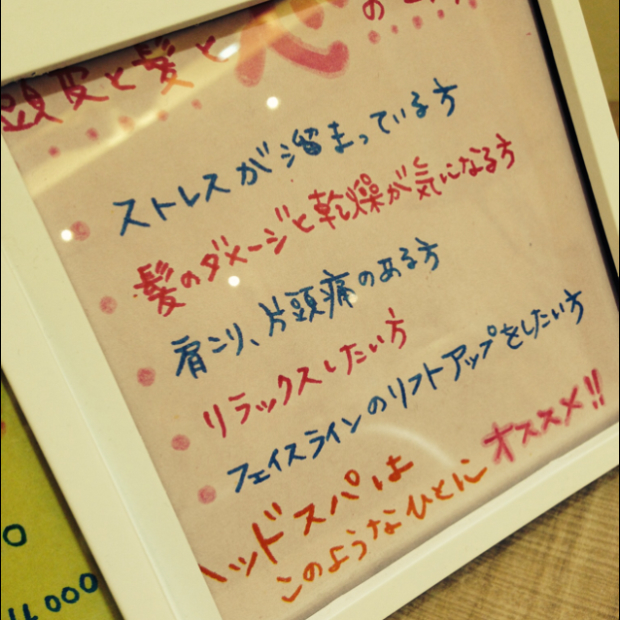 頭皮と髪と心の
ストレスが溜まっている方
髪のダメージと乾燥が気になる方
肩こり、片頭痛のある方
リラックスしたい方
フェイスラインのリフトアップをしたい方
ヘッドスパは
このようなひとにオススメ!!
0
000